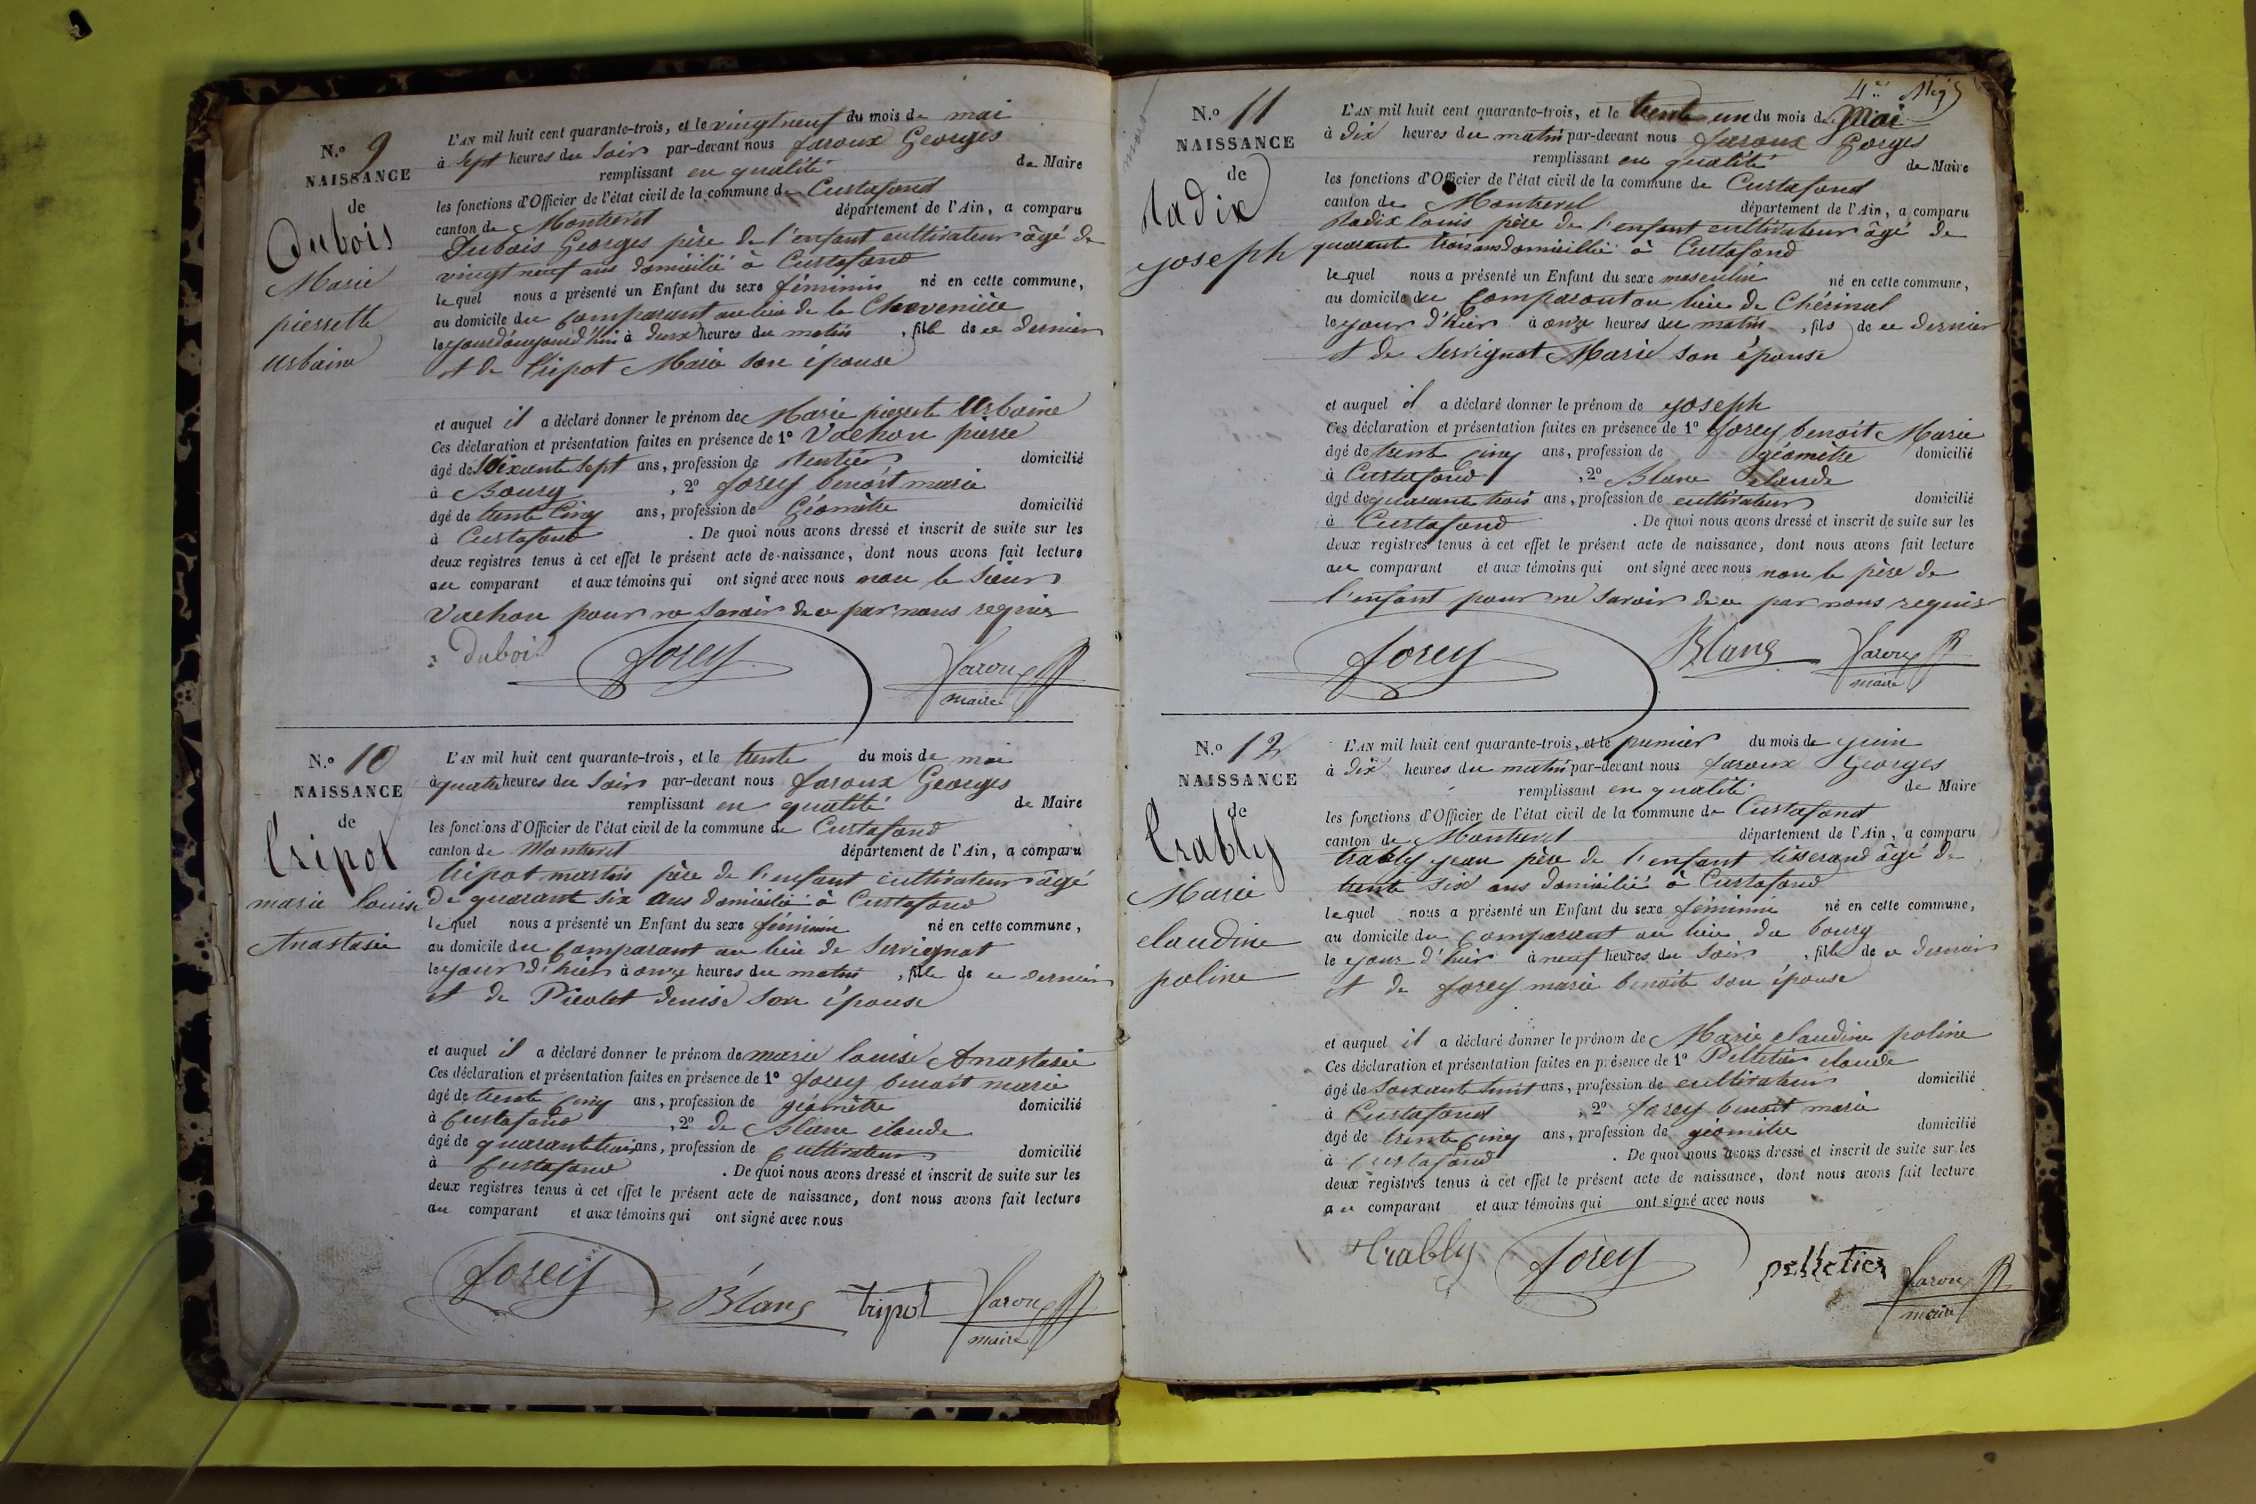 N.o 9
NAISSANCE
de
Dubois
Marie
pierrette
urbaine
L'AN mil huit cent quarante-trois, et le vingt neuf du mois de mai
à sept heures du soir par-devant nous faroux Georges
remplissant en qualité de Maire
les fonctions d'Officier de l'état civil de la commune de Curtafond
canton de Montrevel département de l'Ain, a comparu
Dubois Georges père de l'enfant cultivateur âgé de
vingt neuf ans domicilié à Curtafond
lequel nous a présenté un Enfant du sexe féminin né en cette commune,
au domicile du comparant au lieu de la
le jour d'aujourd'hui à deux heures du matin, fille de ce dernier
et de tripot Marie son épouse
et auquel il a déclaré donner le prénom de Marie pierrette urbaine
Ces déclaration et présentation faites en présence de 1o Vachon pierre
âgé de soixante sept ans, profession de rentier domicilié
à Bourg, 2o forey benoit marie
âgé de trente cinq ans, profession de Géomètre domicilié
à Curtafond. De quoi nous avons dressé et inscrit de suite sur les
deux registres tenus à cet effet le présent acte de naissance, dont nous avons fait lecture
au comparant et aux témoins qui ont signé avec nous non le sieur
Vachon pour ne savoir de ce par nous requis
dubois forey faroux
maire
N.o 10
NAISSANCE
de
Tripot
marie louise
Anastasie
L'AN mil huit cent quarante-trois, et le trente du mois de mai
à quatre heures du soir par-devant nous faroux Georges
remplissant en qualité de Maire
les fonctions d'Officier de l'état civil de la commune de Curtafond
canton de Montrevel département de l'Ain, a comparu
tripot martin père de l'enfant cultivateur âgé
de quarant six ans domicilié à Curtafond
lequel nous a présenté un Enfant du sexe féminin né en cette commune,
au domicile du comparant au lieu de Servignat
le jour d'hier à onze heures du matin, fille de ce dernier
et de Picolet denise son épouse
et auquel il a déclaré donner le prénom de marie louise Anastasie
Ces déclaration et présentation faites en présence de 1o forey benoit marie
âgé de trente cinq ans, profession de géomètre domicilié
à Curtafond, 2o de Blanc claude
âgé de quarante trois ans, profession de cultivateur domicilié
à Curtafond. De quoi nous avons dressé et inscrit de suite sur les
deux registres tenus à cet effet le présent acte de naissance, dont nous avons fait lecture
au comparant et aux témoins qui ont signé avec nous
forey Blanc tripot faroux
maire
N.o 11
NAISSANCE
de
Radix
joseph
L'AN mil huit cent quarante-trois, et le trente un du mois de Mai
à dix heures du matin par-devant nous faroux Gorges
remplissant en qualité de Maire
les fonctions d'Officier de l'état civil de la commune de Curtafond
canton de Montrevel département de l'Ain, a comparu
Radix louis père de l'enfant cultivateur âgé de
quarant trois ans domicillié à Curtafond
lequel nous a présenté un Enfant du sexe masculin né en cette commune,
au domicile du comparant au lieu de Chérinal
le jour d'hier à onze heures du matin, fils de ce dernier
et de Servignat Marie son épouse
et auquel il a déclaré donner le prénom de joseph
Ces déclaration et présentation faites en présence de 1o forey benoit Marie
âgé de trente cinq ans, profession de géomètre domicilié
à Curtafond, 2o Blanc Claude
âgé de quarante trois ans, profession de cultivateur domicilié
à Curtafond. De quoi nous avons dressé et inscrit de suite sur les
deux registres tenus à cet effet le présent acte de naissance, dont nous avons fait lecture
au comparant et aux témoins qui ont signé avec nous non le père de
l'enfant pour ne savoir de ce par nous requis
forey Blanc faroux
maire
N.o 12
NAISSANCE
de
Trably
Marie
claudine
poline
L'AN mil huit cent quarante-trois, et le premier du mois de juin
à dix heures du matin par-devant nous faroux Georges
remplissant en qualité de Maire
les fonctions d'Officier de l'état civil de la commune de Curtafond
canton de Montrevel département de l'Ain, a comparu
trably jean père de l'enfant tisserand âgé de
trente six ans domicilié à Curtafond
lequel nous a présenté un Enfant du sexe féminin né en cette commune,
au domicile du comparant au lieu du bourg
le jour d'hier à neuf heures du soir, fille de ce dernier
et de forey marie benoite son épouse
et auquel il a déclaré donner le prénom de Marie claudine poline
Ces déclaration et présentation faites en présence de 1o Pelletier claude
âgé de soixante huit ans, profession de cultivateur domicilié
à Curtafond, 2o forey benoit marie
âgé de trente cinq ans, profession de géomètre domicilié
à Curtafond. De quoi nous avons dressé et inscrit de suite sur les
deux registres tenus à cet effet le présent acte de naissance, dont nous avons fait lecture
au comparant et aux témoins qui ont signé avec nous
Trably forey pelletier faroux
maire